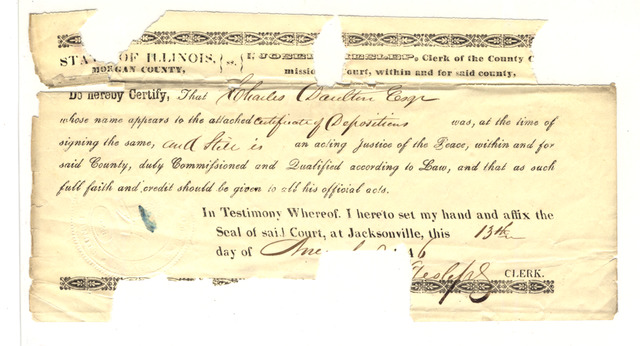 STA OF ILLINOIS, ss. I, JOSE , Clerk of the County C
MORGAN COUNTY, missio Court, within and for said county,
Do hereby Certify, That Charles Daulton Esqr
whose name appears to the attached Certificate of Depositions was, at the time of
signing the same, and Still is an acting Justice of the Peace, within and for
said County, duly Commissioned and Qualified according to Law, and that as such
full faith and credit should be given to all his official acts.
In Testimony Whereof. I hereto set my hand and affix the
Seal of said Court, at Jacksonville, this 13th
day of 6
CLERK.